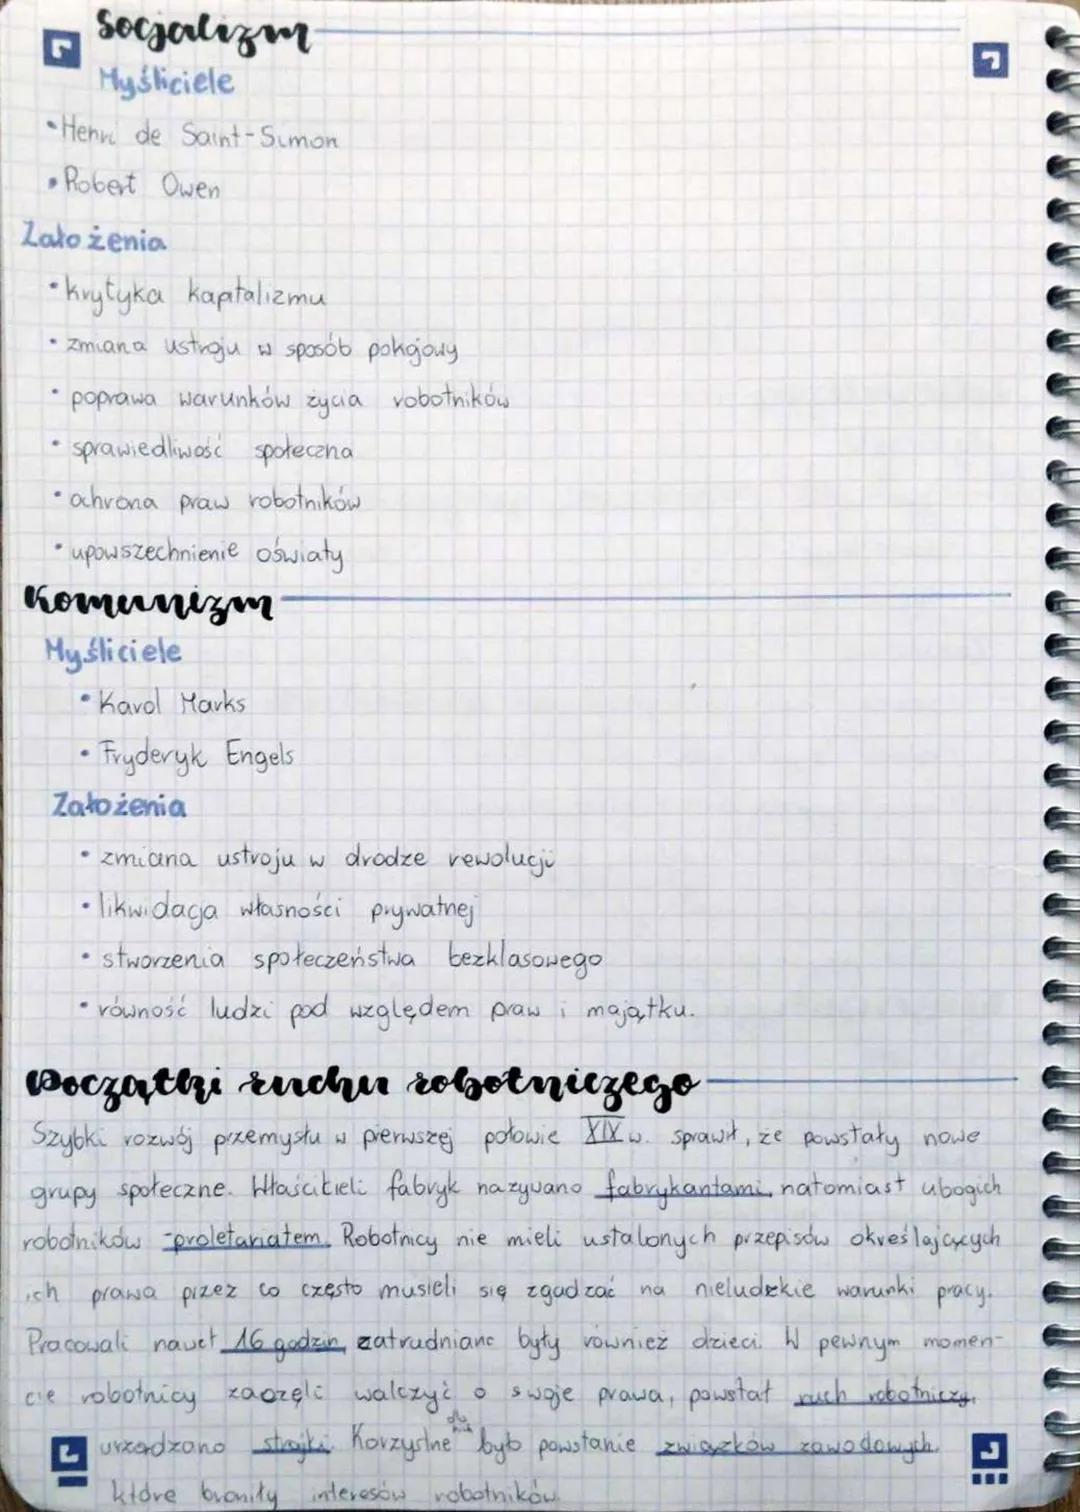 Socjalizm
Myśliciele
• Henri de Saint-Simon
• Robert Owen
Założenia
• krytyka kapitalizmu
• zmiana ustroju w sposób pokojowy
• poprawa warunków życia robotników
• sprawiedliwość społeczna
• ochrona praw robotników
• upowszechnienie oświaty
Komunizm
Myśliciele
• Karol Marks
• Fryderyk Engels
Założenia
• zmiana ustroju w drodze rewolucji
• likwidacja własności prywatnej
• stworzenia społeczeństwa bezklasowego
• równość ludzi pod względem praw i majątku.
Początki ruchu robotniczego
Szybki rozwój przemysłu w pierwszej połowie XIX w. sprawił, że powstały nowe
grupy społeczne. Właścicieli fabryk nazywano fabrykantami, natomiast ubogich
robotników -proletariatem. Robotnicy nie mieli ustalonych przepisów określających
ich prawa przez co często musieli się zgadzać na nieludzkie warunki pracy.
Pracowali nawet 16 godzin, zatrudniane były również dzieci. W pewnym momen-
cie robotnicy zaczęli walczyć o swoje prawa, powstał ruch robotniczy,
urządzano strajki. Korzystne dla nich było powstanie związków zawodowych,
które broniły interesów robotników.